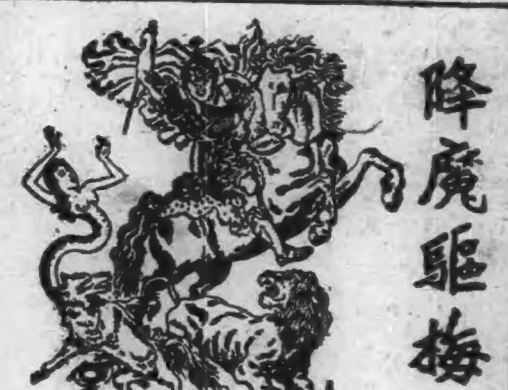 降魔驅梅